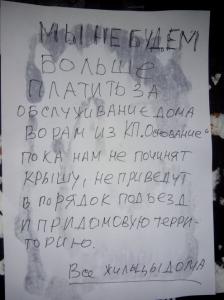 МЫ НЕ БУДЕМ
БОЛЬШЕ
ПЛАТИТЬ ЗА
ОБСЛУЖИВАНИЕ ДОМА
ВОРАМ ИЗ КП „Основание"
ПОКА НАМ НЕ ПОЧИНЯТ
КРЫШУ, НЕ ПРИВЕДУТ
В ПОРЯДОК ПОДЪЕЗД
И ПРИДОМОВУЮ ТЕРРИ-
ТОРИЮ.
Все жильцы дома